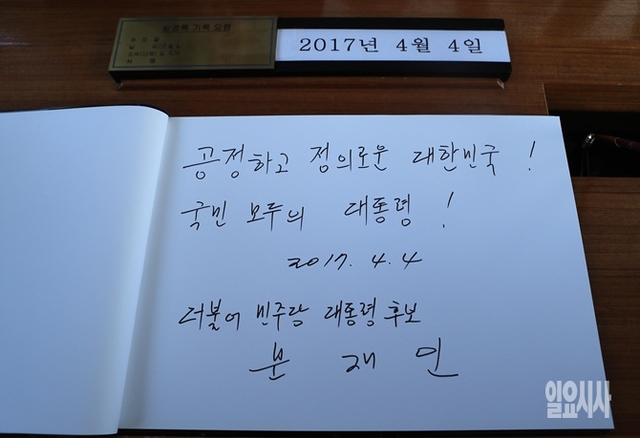 방명록 기록 요령
2017년 4월 4일
공정하고 정의로운 대한민국 !
국민 모두의 대통령 !
2017. 4. 4
더불어 민주당 대통령 후보
문 재 인
일요시사